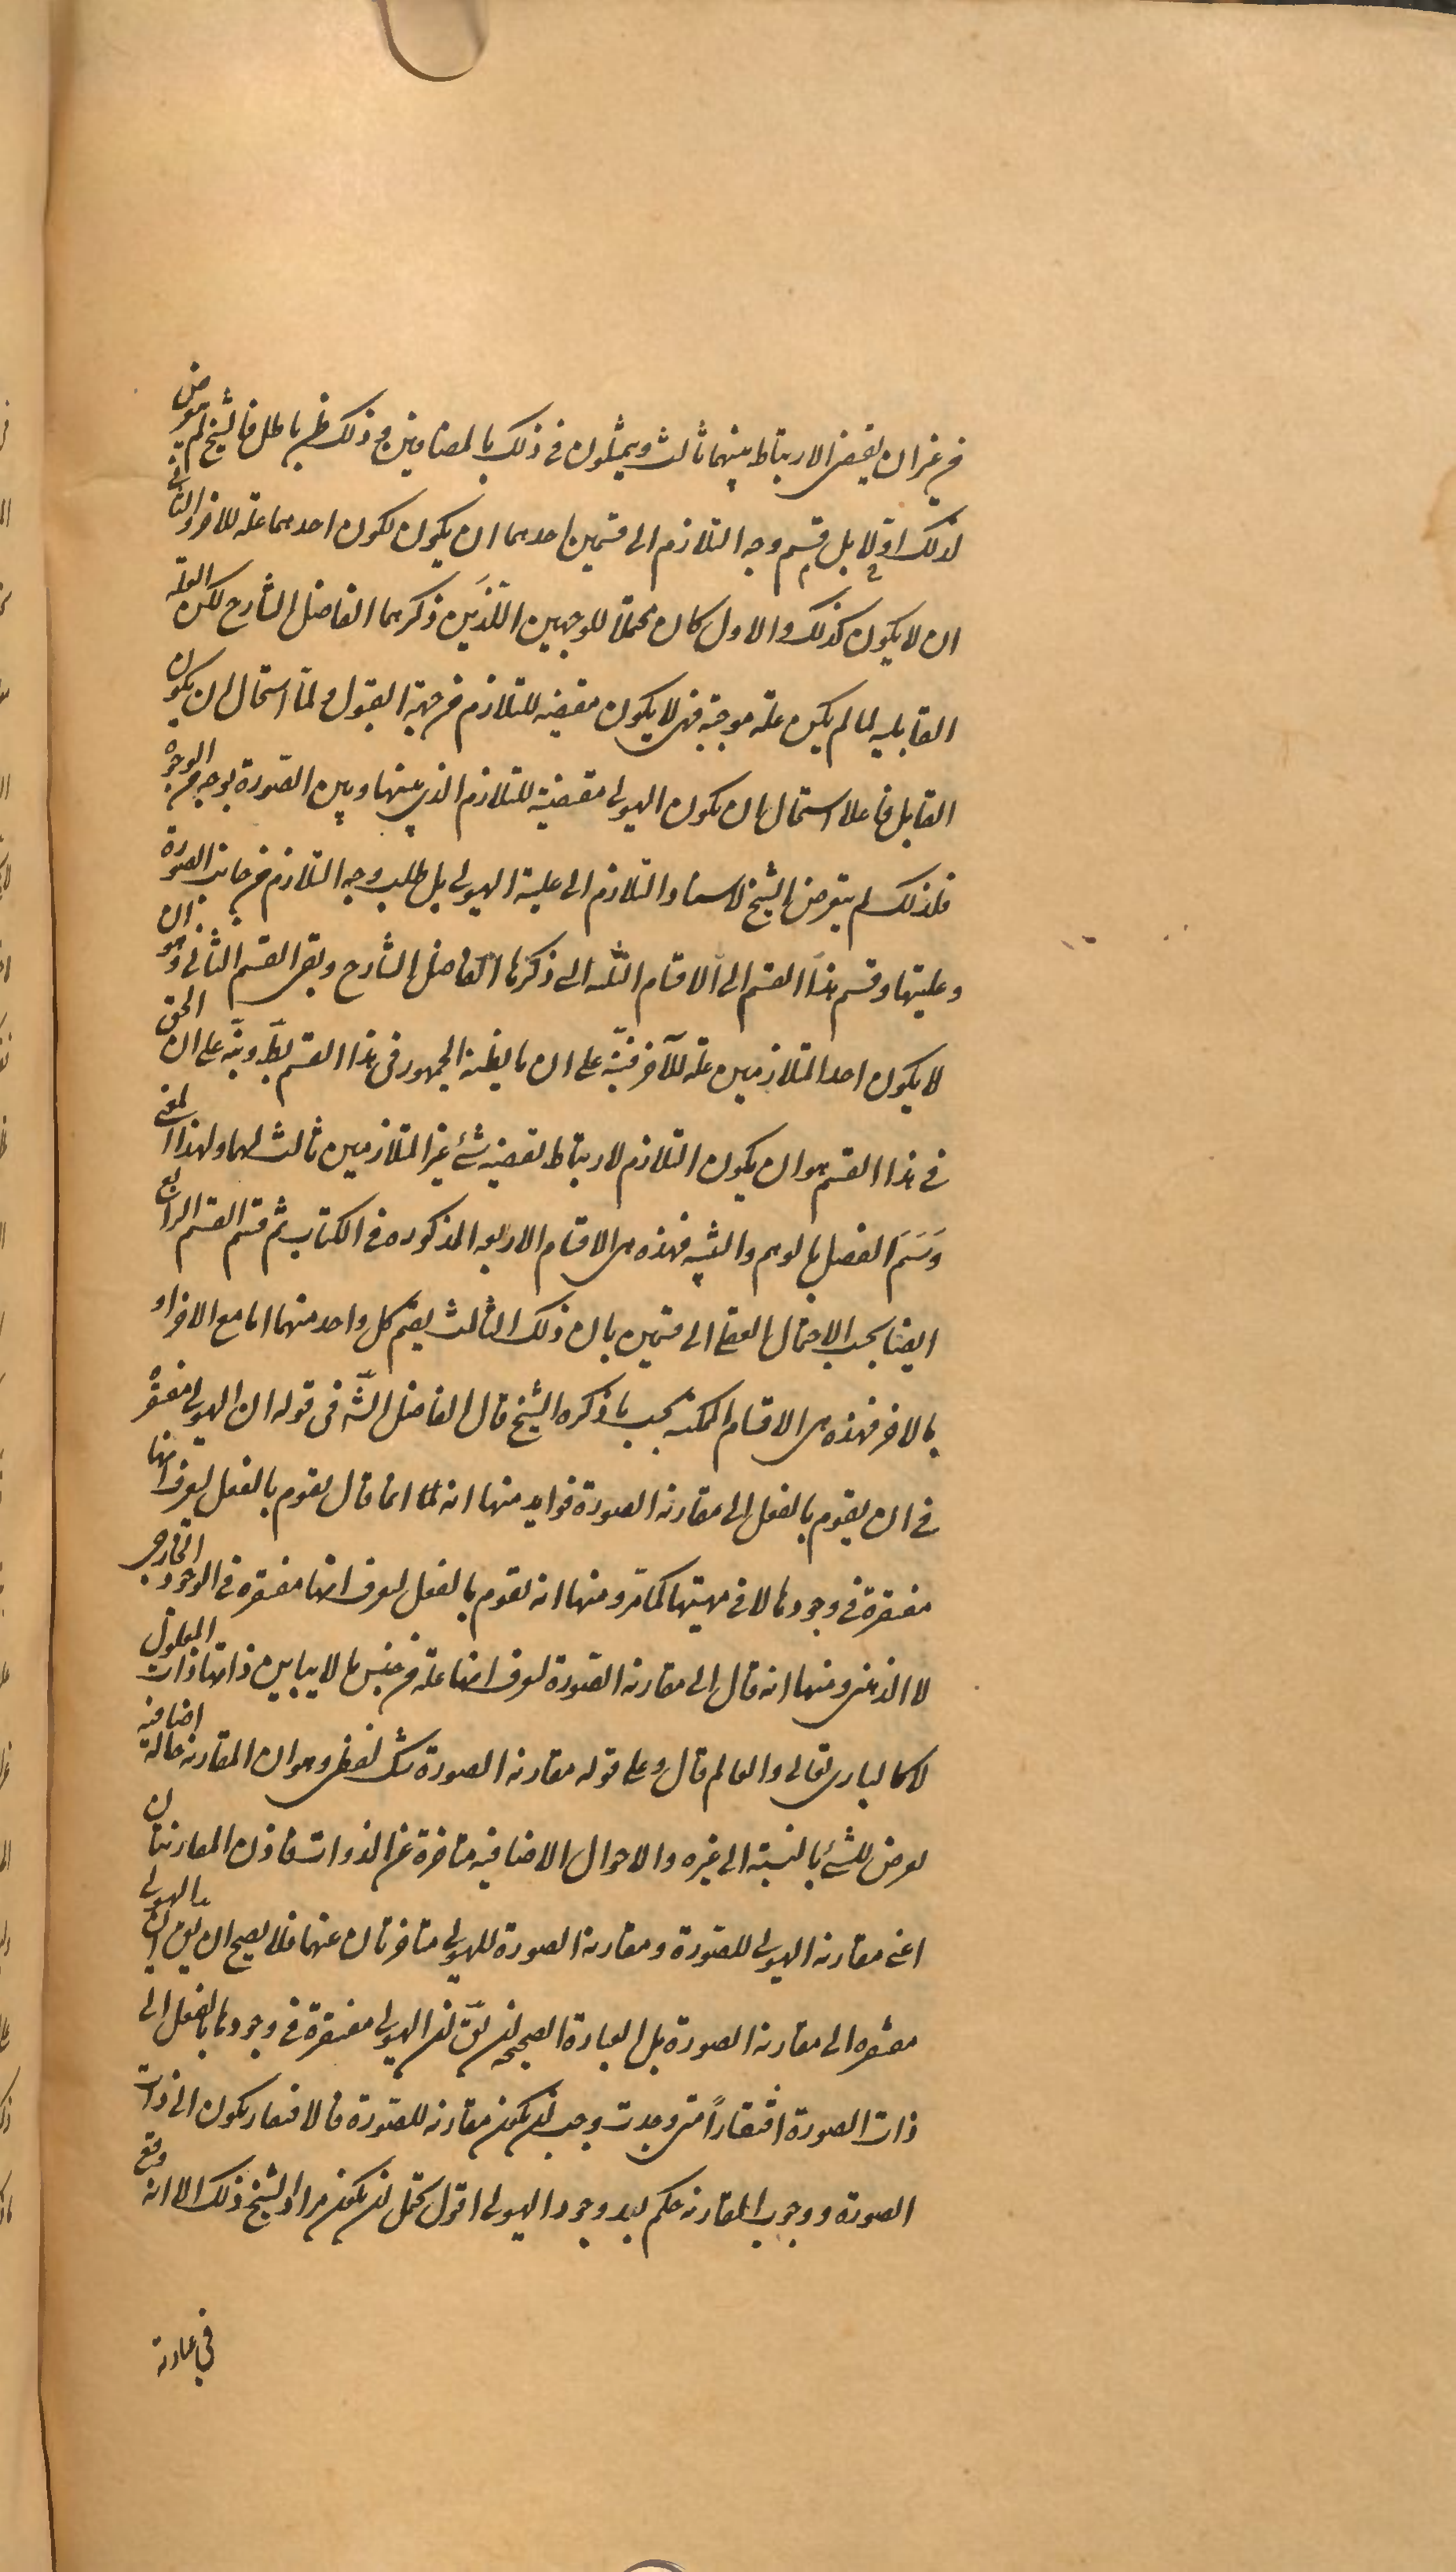 من غير ان يقتضى الارتباط بينهما ثالث ويمثلون فى ذلك بالمضافين وذلك ظن باطل فالشيخ لم يتعرض
لذلك اولا بل قسم وجه التلازم الى قسمين احدهما ان يكون لكون احدهما علة للاخر والثانى
ان لا يكون كذلك والاول كان محتملا للوجهين اللذَين ذكرهما الفاضل الشارح لكن العلة
القابلية لما لم يكن علة موجبة فهى لا يكون مقتضيه للتلازم من جهة القبول ولما استحال ان يكون
القابل فاعلا استحال ان يكون الهيولى مقتضية للتلازم الذى بينها وبين الصورة بوجه من الوجوه
فلذلك لم يتعرض الشيخ لاسناد التلازم الى علية الهيولى بل طلب وجه التلازم من جانب الصورة
وعليتها وقسم هذا القسم الى الاقسام الثلثه التى ذكرها الفاضل الشارح وبقى القسم الثانى وهو ان
لا يكون احد المتلازمين علة للآخر فنبّه على ان ما يظنه الجمهور فى هذا القسم بط ونبّه على ان الحق
فى هذا القسم هو ان يكون التلازم لارتباط يقتضيه شئ غير المتلازمين ثالث لهما ولهذا المعنى
وَسَمَ الفصل بالوهم والتنبيه فهذه هى الاقسام الاربعه المذكوره فى الكتاب ثم قسم القسم الرابع
ايضا بحسب الاحتمال العقلى الى قسمين بان ذلك الثالث يقيم كل واحد منهما اما مع الاخر او
بالاخر فهذه هى الاقسام الممكنة بحسب ما ذكره الشيخ قال الفاضل الشّه فى قوله ان الهيولى مفتقرة
فى ان يقوم بالفعل الى مقارنة الصورة فوايد منها انه انما قال يقوم بالفعل ليعرف انها
مفتقرة فى وجودها لا فى مهيتها كما مرّ ومنها انه يقوم بالفعل ليعرف انها مفتقرة فى الوجود الخارجى
لا الذهنى ومنها انه قال الى مقارنة الصورة ليعرف انها علة من جنس ما لا يباين ذاتها ذات المعلول
لا كالبارى تعالى والعالم قال وعلى قوله مقارنة الصورة شك لفظى وهو ان المقارنه حالة اضافية
يعرض للشئ بالنسبة الى غيره والاحوال الاضافيه متاخرة عن الذوات فاذن المقارنتان
اعنى مقارنة الهيولى للصورة ومقارنة الصورة للهيولى متاخرتان عنهما فلا يصح ان يق ان الهيولى
مفتقره الى مقارنة الصورة بل العبارة الصحيحه ان يقّ ان الهيولى مفتقرة فى وجودها بالفعل الى
ذات الصورة افتقاراً متى وجدت وجب ان يكون مقارنه للصورة فالافتقار يكون الى ذات
الصورة ووجوب المقارنه حكم بعد وجود الهيولى اقول يحتمل ان يكون مراد الشيخ ذلك الا انه وقع
فى عبارته